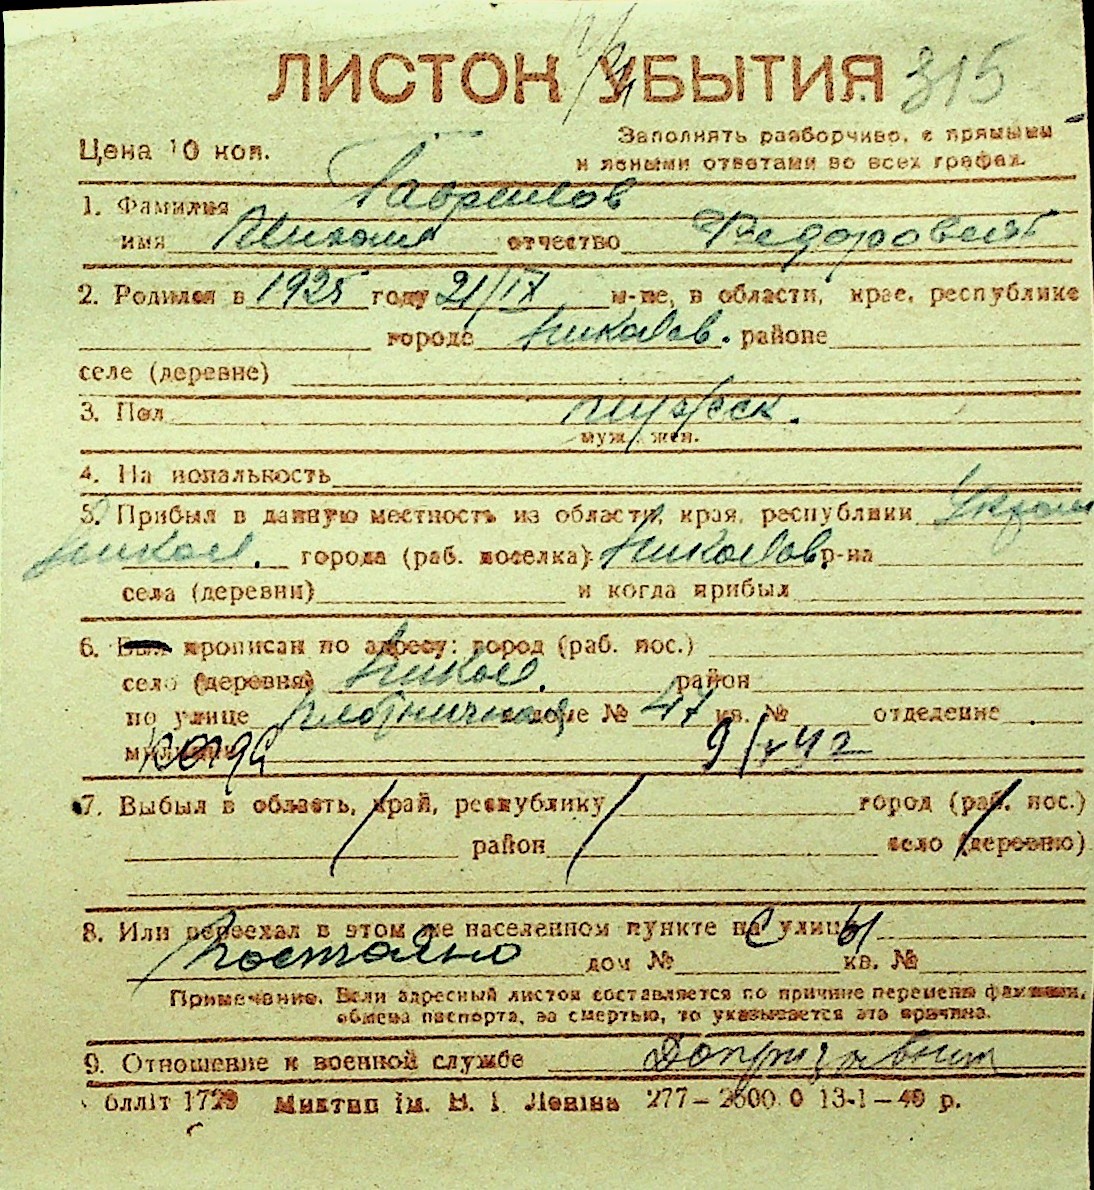 ЛИСТОК УБЫТИЯ 315
Цена 10 коп.
Заполнять разборчиво, с прямыми
и ясными ответами во всех графах.
1. Фамилия Гаврилов
имя Михаил отчество Федорович
2. Родился в 1925 году 21/IX м-це, в области, крае, республике
городе Николаев. районе
селе (деревне)
3. Пол мужск.
муж., жен.
4. Национальность
5. Прибыл в данную местность из области, края, республики Украин
Никол. города (раб. поселка) Николаев р-на
села (деревни) и когда прибыл
6. Был прописан по адресу: город (раб. пос.)
село (деревня) Никол. район
по улице доме № 47 кв. № отделение
милиции когда
7. Выбыл в область, край, республику город (раб. пос.)
район село (деревню)
8. Или переехал в этом же населенном пункте на улицы
дом № кв. №
Примечание. Если адресный листок составляется по причине перемены фамилии,
обмена паспорта, за смертью, то указывается эта причина.
9. Отношение к военной службе Допризывник
блліт 1729 Миктип ім. В. І. Леніна 277–2500 0 13-1–40 р.